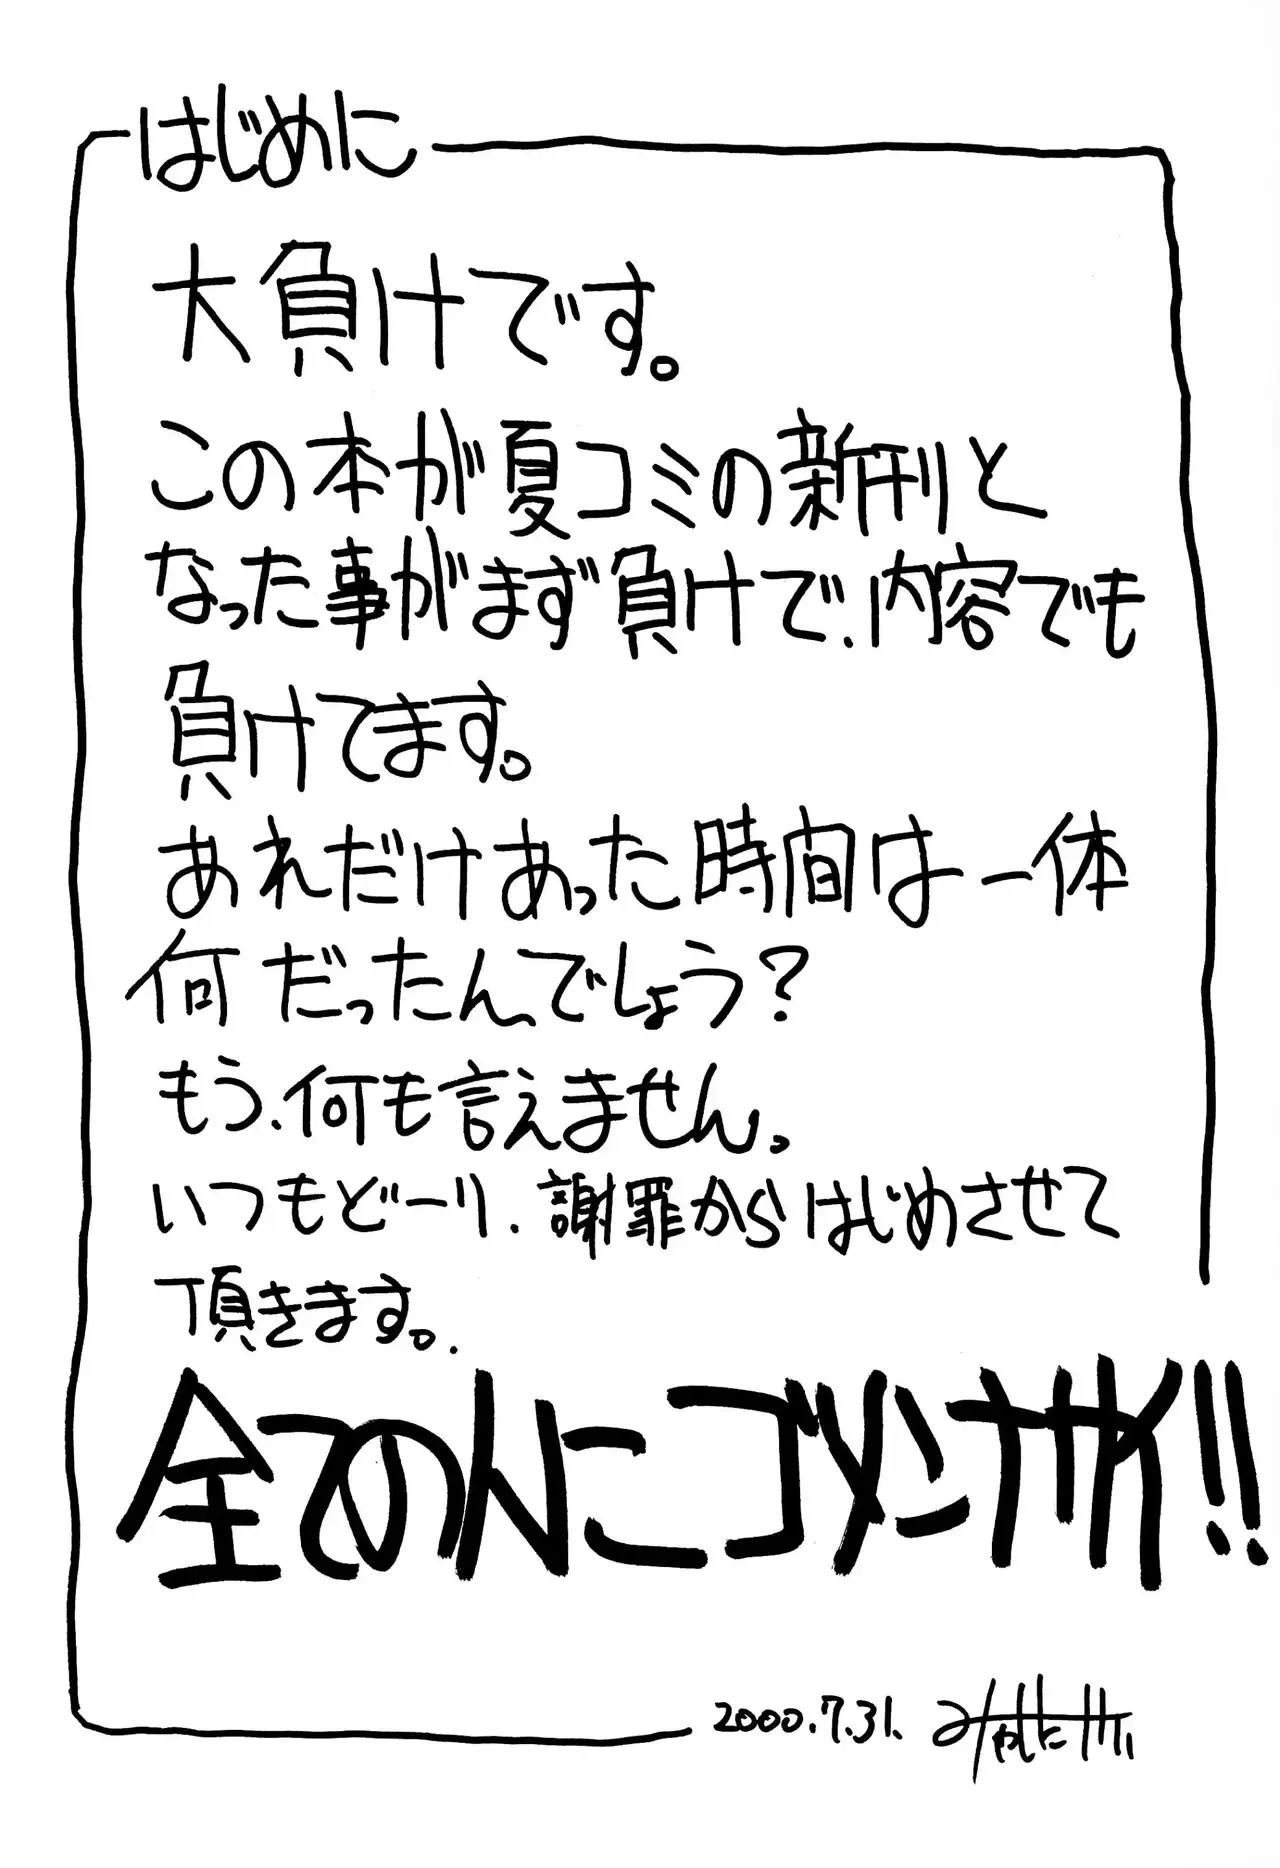 はじめに
大負けです。
この本が夏コミの新刊と
なった事がまず負けで、内容でも
負けてます。
あれだけあった時間は一体
何だったんでしょう?
もう、何も言えません。
いつもどーり、謝罪からはじめさせて
頂きます。
全ての人にゴメンナサイ!!
2000.7.31.